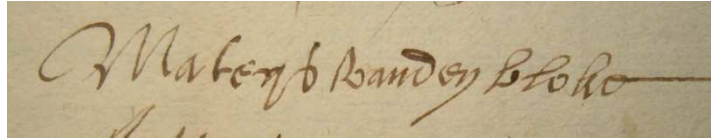 Mateys vanden bloke